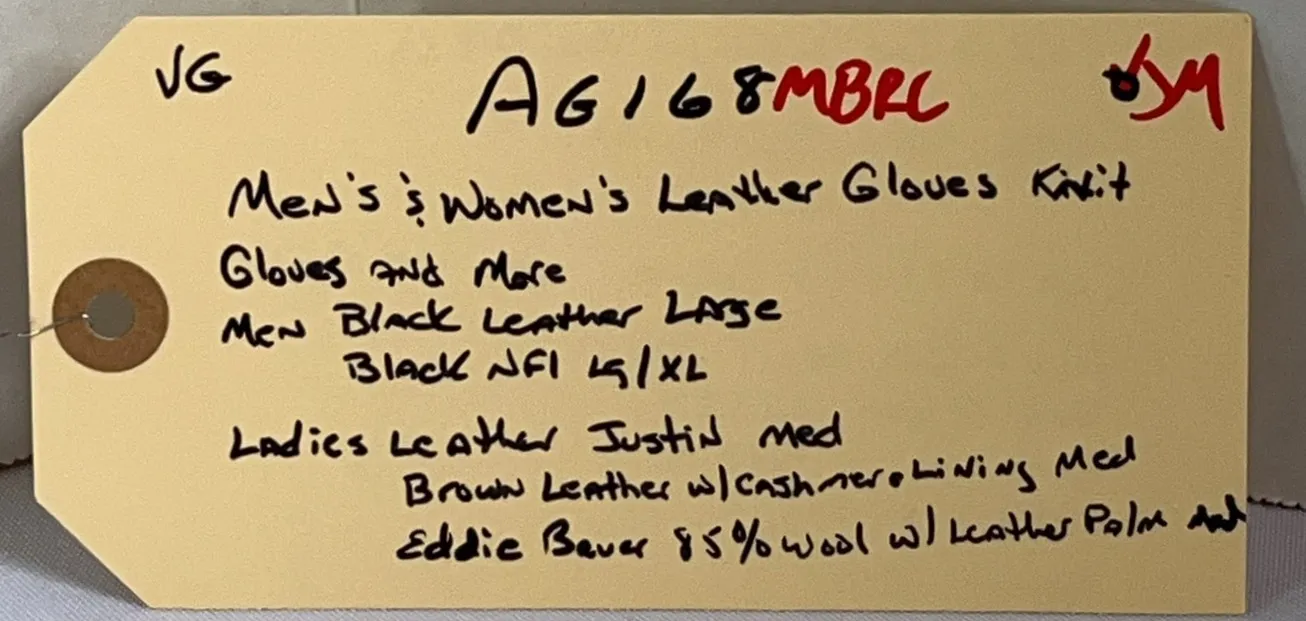 VG AG168MBRC JM
Men's & Women's Leather Gloves Knit
Gloves and More
Men Black Leather Large
Black NFl LG/XL
Ladies Leather Justin Med
Brown Leather w/Cashmere Lining Med
Eddie Bauer 85% Wool w/ Leather Palm